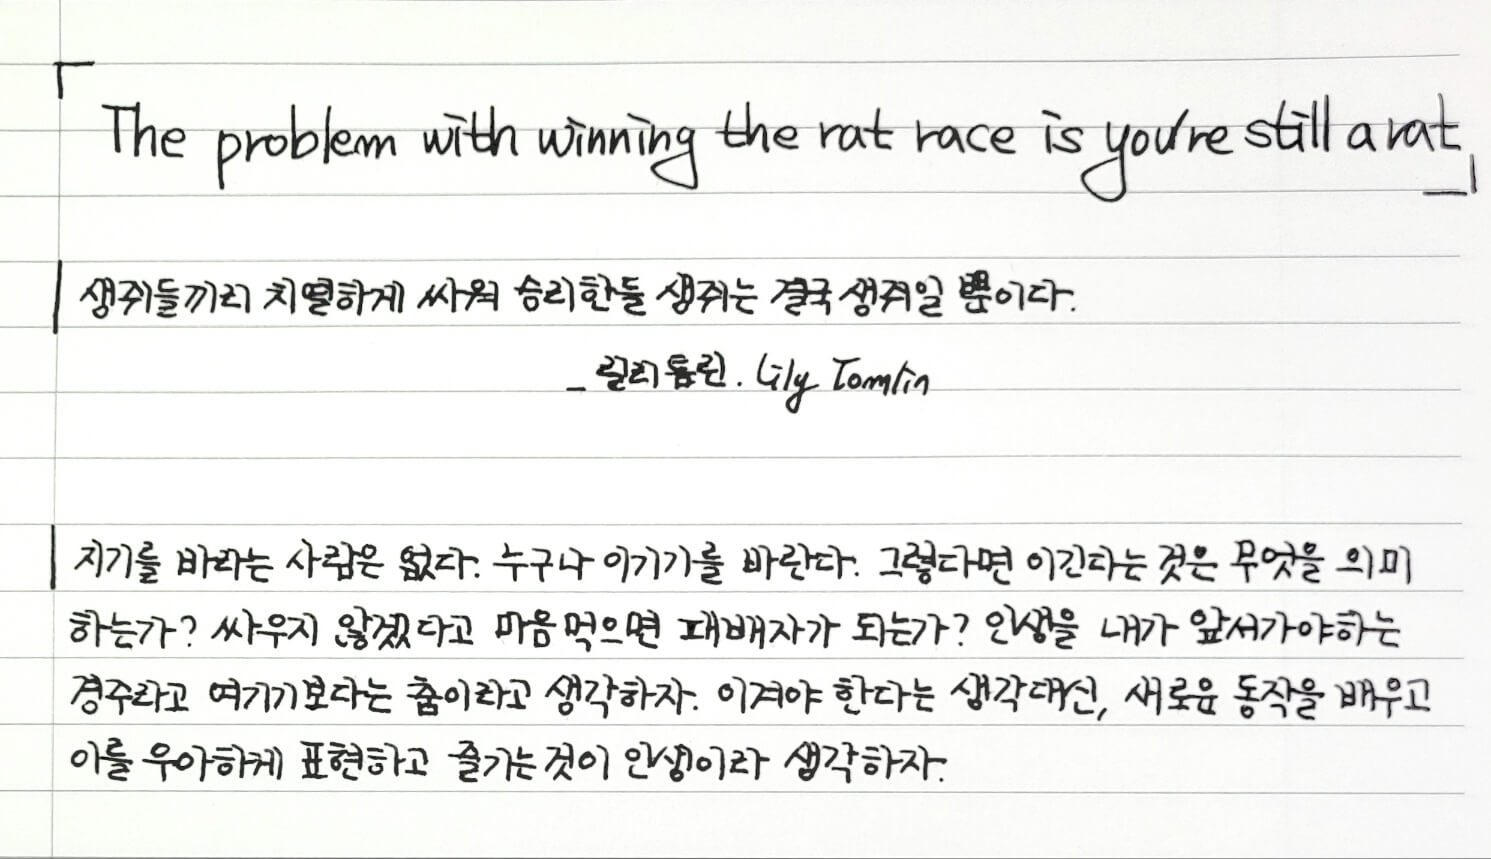 「The problem with winning the rat race is you're still a rat」
생쥐들끼리 치열하게 싸워 승리한들 생쥐는 결국 생쥐일 뿐이다.
- 릴리 톰린. Lily Tomlin
지기를 바라는 사람은 없다. 누구나 이기기를 바란다. 그렇다면 이긴다는 것은 무엇을 의미
하는가? 싸우지 않겠다고 마음먹으면 패배자가 되는가? 인생을 내가 앞서가야하는
경주라고 여기기보다는 춤이라고 생각하자. 이겨야 한다는 생각대신, 새로운 동작을 배우고
이를 우아하게 표현하고 즐기는것이 인생이라 생각하자.